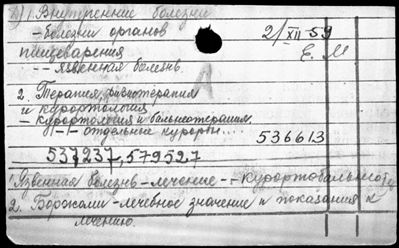 1. Внутренние болезни
- болезни органов 2/XII 59
пищеварения Е. М
-- язвенная болезнь
2. Терапия, физиотерапия
и курортология
- курортология и бальнеотерапия
-1- отдельные курорты... 536613
537237, 579527
1. Язвенная болезнь - лечение -- курортобальнеот
2. Боржоми - лечебное значение и показания к
лечению.